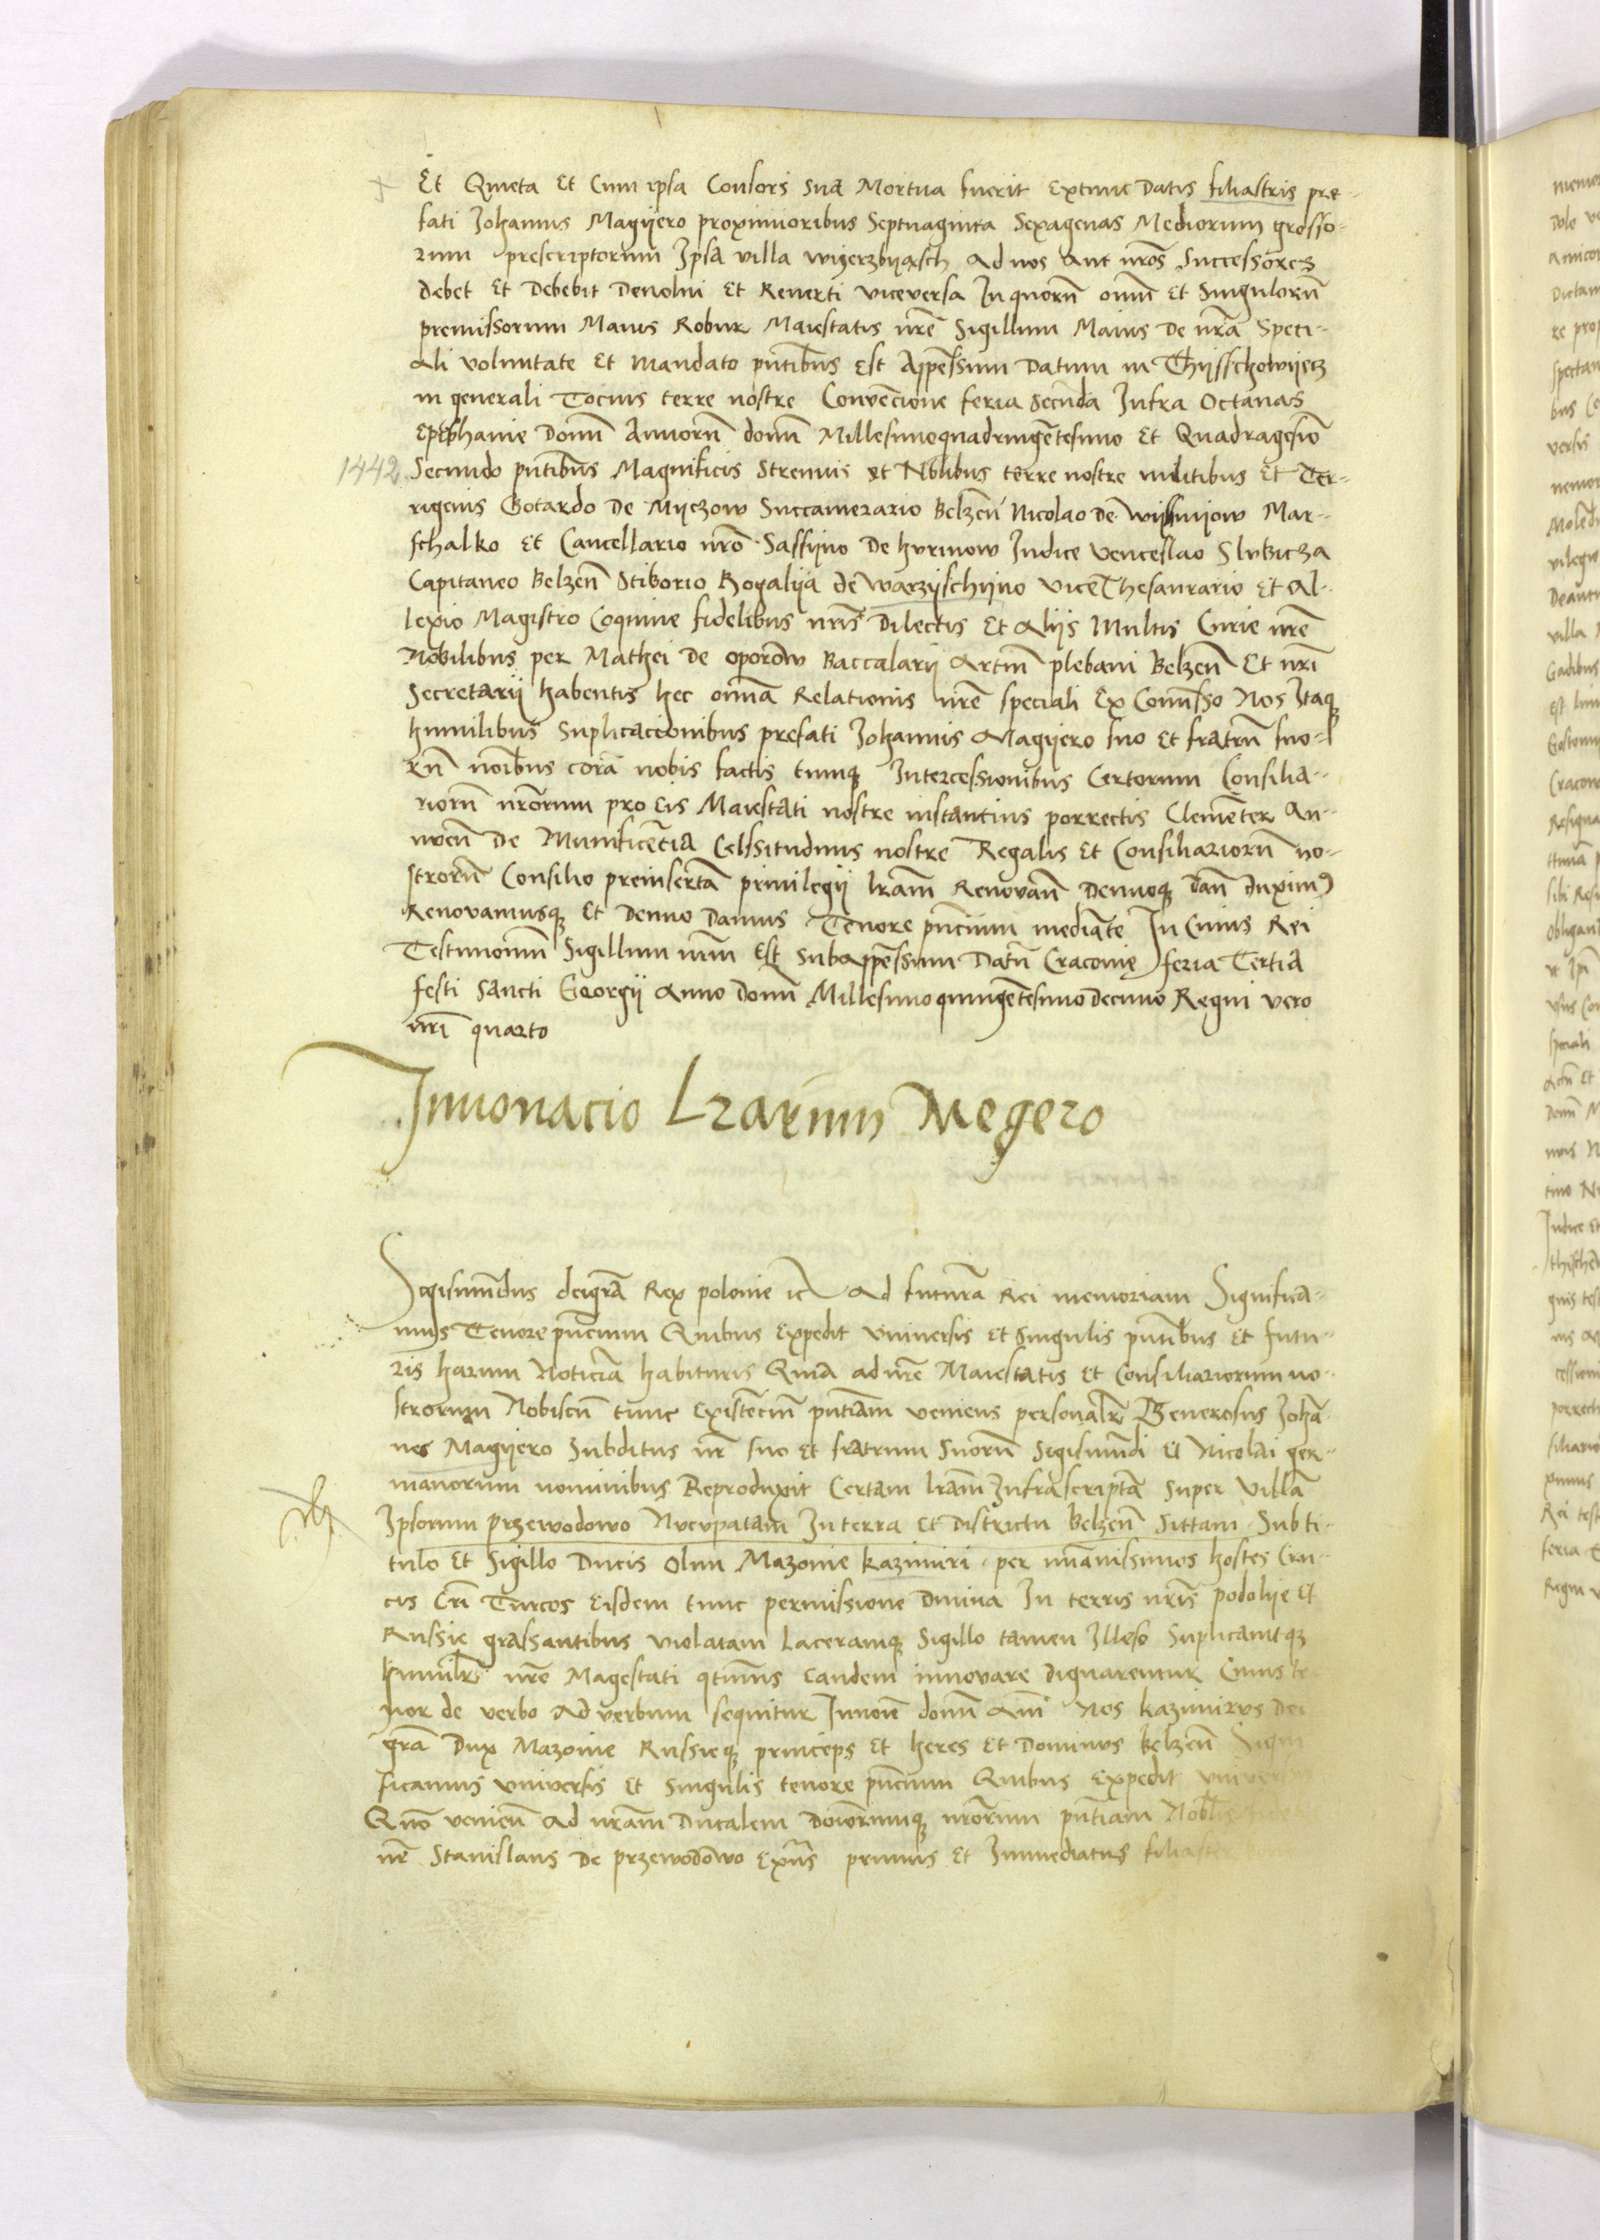 Et Quieta Et Cum ipsa Consors sua Mortua fuerit extunc Datis filiastris pre-
fati Johannis Magyero proximioribus Septuaginta Sexagenas Mediorum grosso-
rum prescriptorum Ipsa villa wyerzbyąsch Ad nos Aut nrōs Successores
debet Et Debebit Devolui Et Reverti viceversa In quorū oniū Et Singulorū
premissorum Maius Robur Maiestatis nrē Sigillum Maius De nrā Speci-
ali voluntate Et mandato pntibūs est Appēssum Datum in Thysschowyecz
in generali Tocius terre nostre Convēcione feria secūda Infra Octauas
Epiphanie Domī Annorū domī Millesimoquadringētesimo Et Quadragesiō
1442 Secundo pntibūs Magnificis Strenuis et Nblibus terre nostre militibus Et Ter-
rigenis Gotardo De Myczow Succamerario Belzeñ Nicolao De Wysnyow Mar-
schalko Et Cancellario nrō Sassyno De hurmow Indice Venceslao Slubicza
Capitaneo Belzeñ Stiborio Rogalya de warzyschyno viceThesaurario Et Al-
lexio Magistro Coquine fidelibus nrīs Dilectis Et Alijs Multis Curie nrē
Nobilibus per Mathei De oporow Baccalarij Artiū plebani Belzeñ Et nrī
Secretarij habentis hec omā Relationis nrē speciali Ex Comisso Nos Itaq
humilibus Suplicacionibus prefati Johannis Magyero suo Et fratrū suo-
rū noībus corā nobis factis tumq Intercessionibus Certorum Consilia-
riorū nrōrum pro Eis Maiestati nostre instantius porrectis Clemēter An-
nueñ De Munificētia Celssitudinis nostre Regalis Et Consiliariorū no-
strorū Consilio preinsertā priuilegij lrām Renovañ Denuoq dañ duximꝰ
Renovamusq Et Denuo Damus Tenore pñcium mediāte In Cuius Rei
Testimoniū Sigillum nrūm est subappēssum Datū Cracouię feria Tertia
festi sancti Georgij Anno domī Millesimoquingētesimo decimo Regni vero
nrī quarto
Innouacio Lrarum Megero
Sigismūdus deigrā Rex polonie ic Ad futurā Rei memoriam Significa-
mus Tenore pñcium Quibus Expedit vniuersis Et Singulis pntibūs Et futu-
ris harum Noticiā habituris Quia ad nrē Maiestatis Et Consiliariorum no-
strorum Nobiscū tunc Existēciū pntiām veniens personalr Generosus Johā-
nes Magyero Subditus nr̄ suo et fratrum Suorū Sigismūdi Et Nicolai ger-
manorum nominibus Reproduxit Certam lrām Infrascriptā Super Villā
Ipsorum przewodowo Nucupatam In terra Et Districtu Belzeñ Sittam Sub ti-
tulo Et Sigillo Ducis Olim Mazouie kazimiri per inmanissimos hostes Cru-
cis Crī Turcos Eisdem tunc permissione Diuina In terris nrīs podolye Et
Russie grassantibus violatam Laceramq Sigillo tamen Illeso Suplicauitq
humilr̄ nrē Magestati qtinus Eandem innovare dignarentur Cuius te-
nor de verbo ad verbum sequitur Innoīe domī Amē Nos kazimirus Dei
grā Dux Mazouie Russieq princeps Et heres Et Dominus belzeñ Signi
ficamus vniversis Et Singulis tenore pñcium Quibus Expedit vniver
Quō venieñ Ad nrām Ducalem pntiam Noblis
nr̄ Stanislaus De przewodowo primus Et Immediatus filiaster